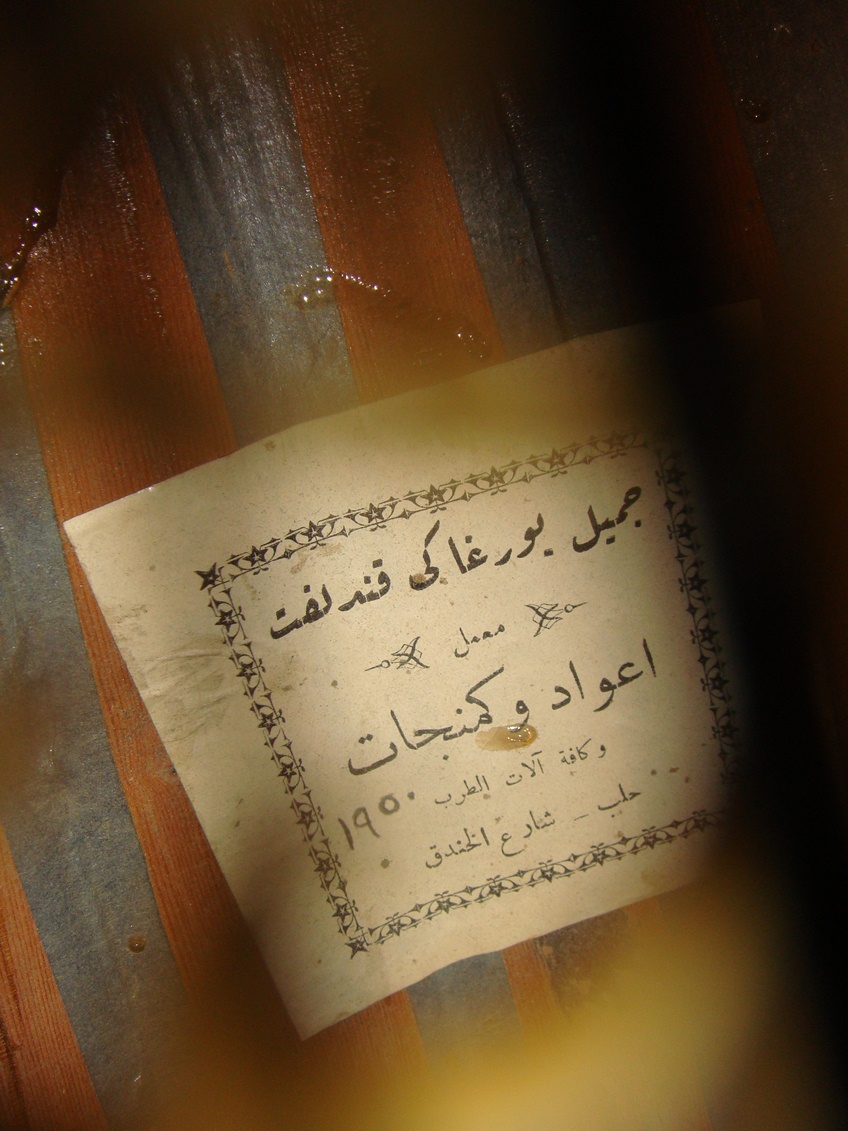 جميل يورغاكي قندلفت
معمل
اعواد وكمنجات
وكافة آلات الطرب
حلب - شارع الخندق
١٩٥٠